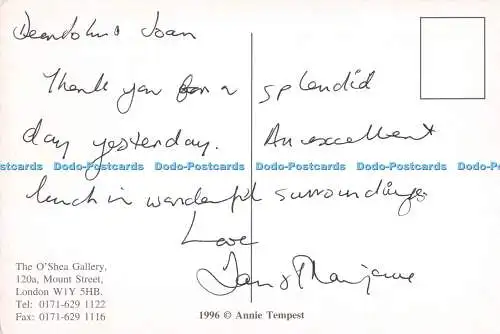 Dear John & Joan
Thank you for a splendid
day yesterday. An excellent
Dodo-Postcards Dodo-Postcards Dodo-Postcards Dodo-Postcards Dodo-Postcards
lunch in wonderful surroundings
Love
Ian & Maryjane
The O'Shea Gallery,
120a, Mount Street,
London W1Y 5HB.
Tel: 0171-629 1122
Fax: 0171-629 1116
1996 © Annie Tempest